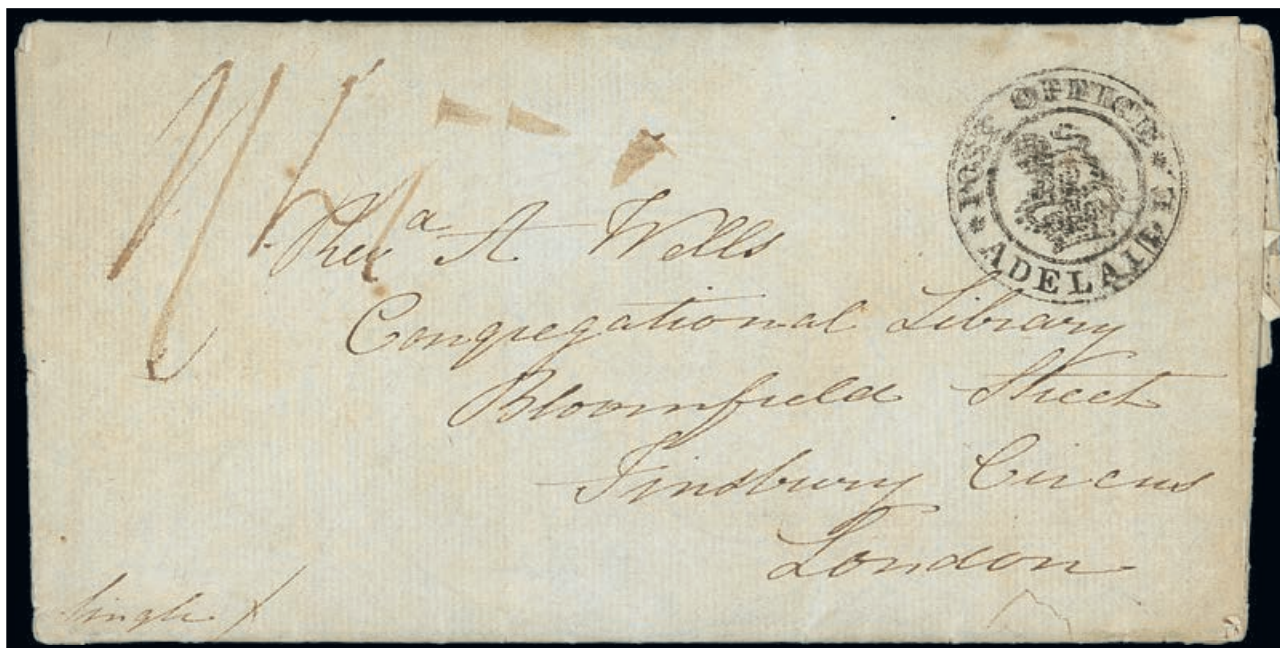 POST OFFICE
ADELAIDE
Revd A Wells
Congregational Library
Bloomfield Street
Finsbury Circus
London
Single